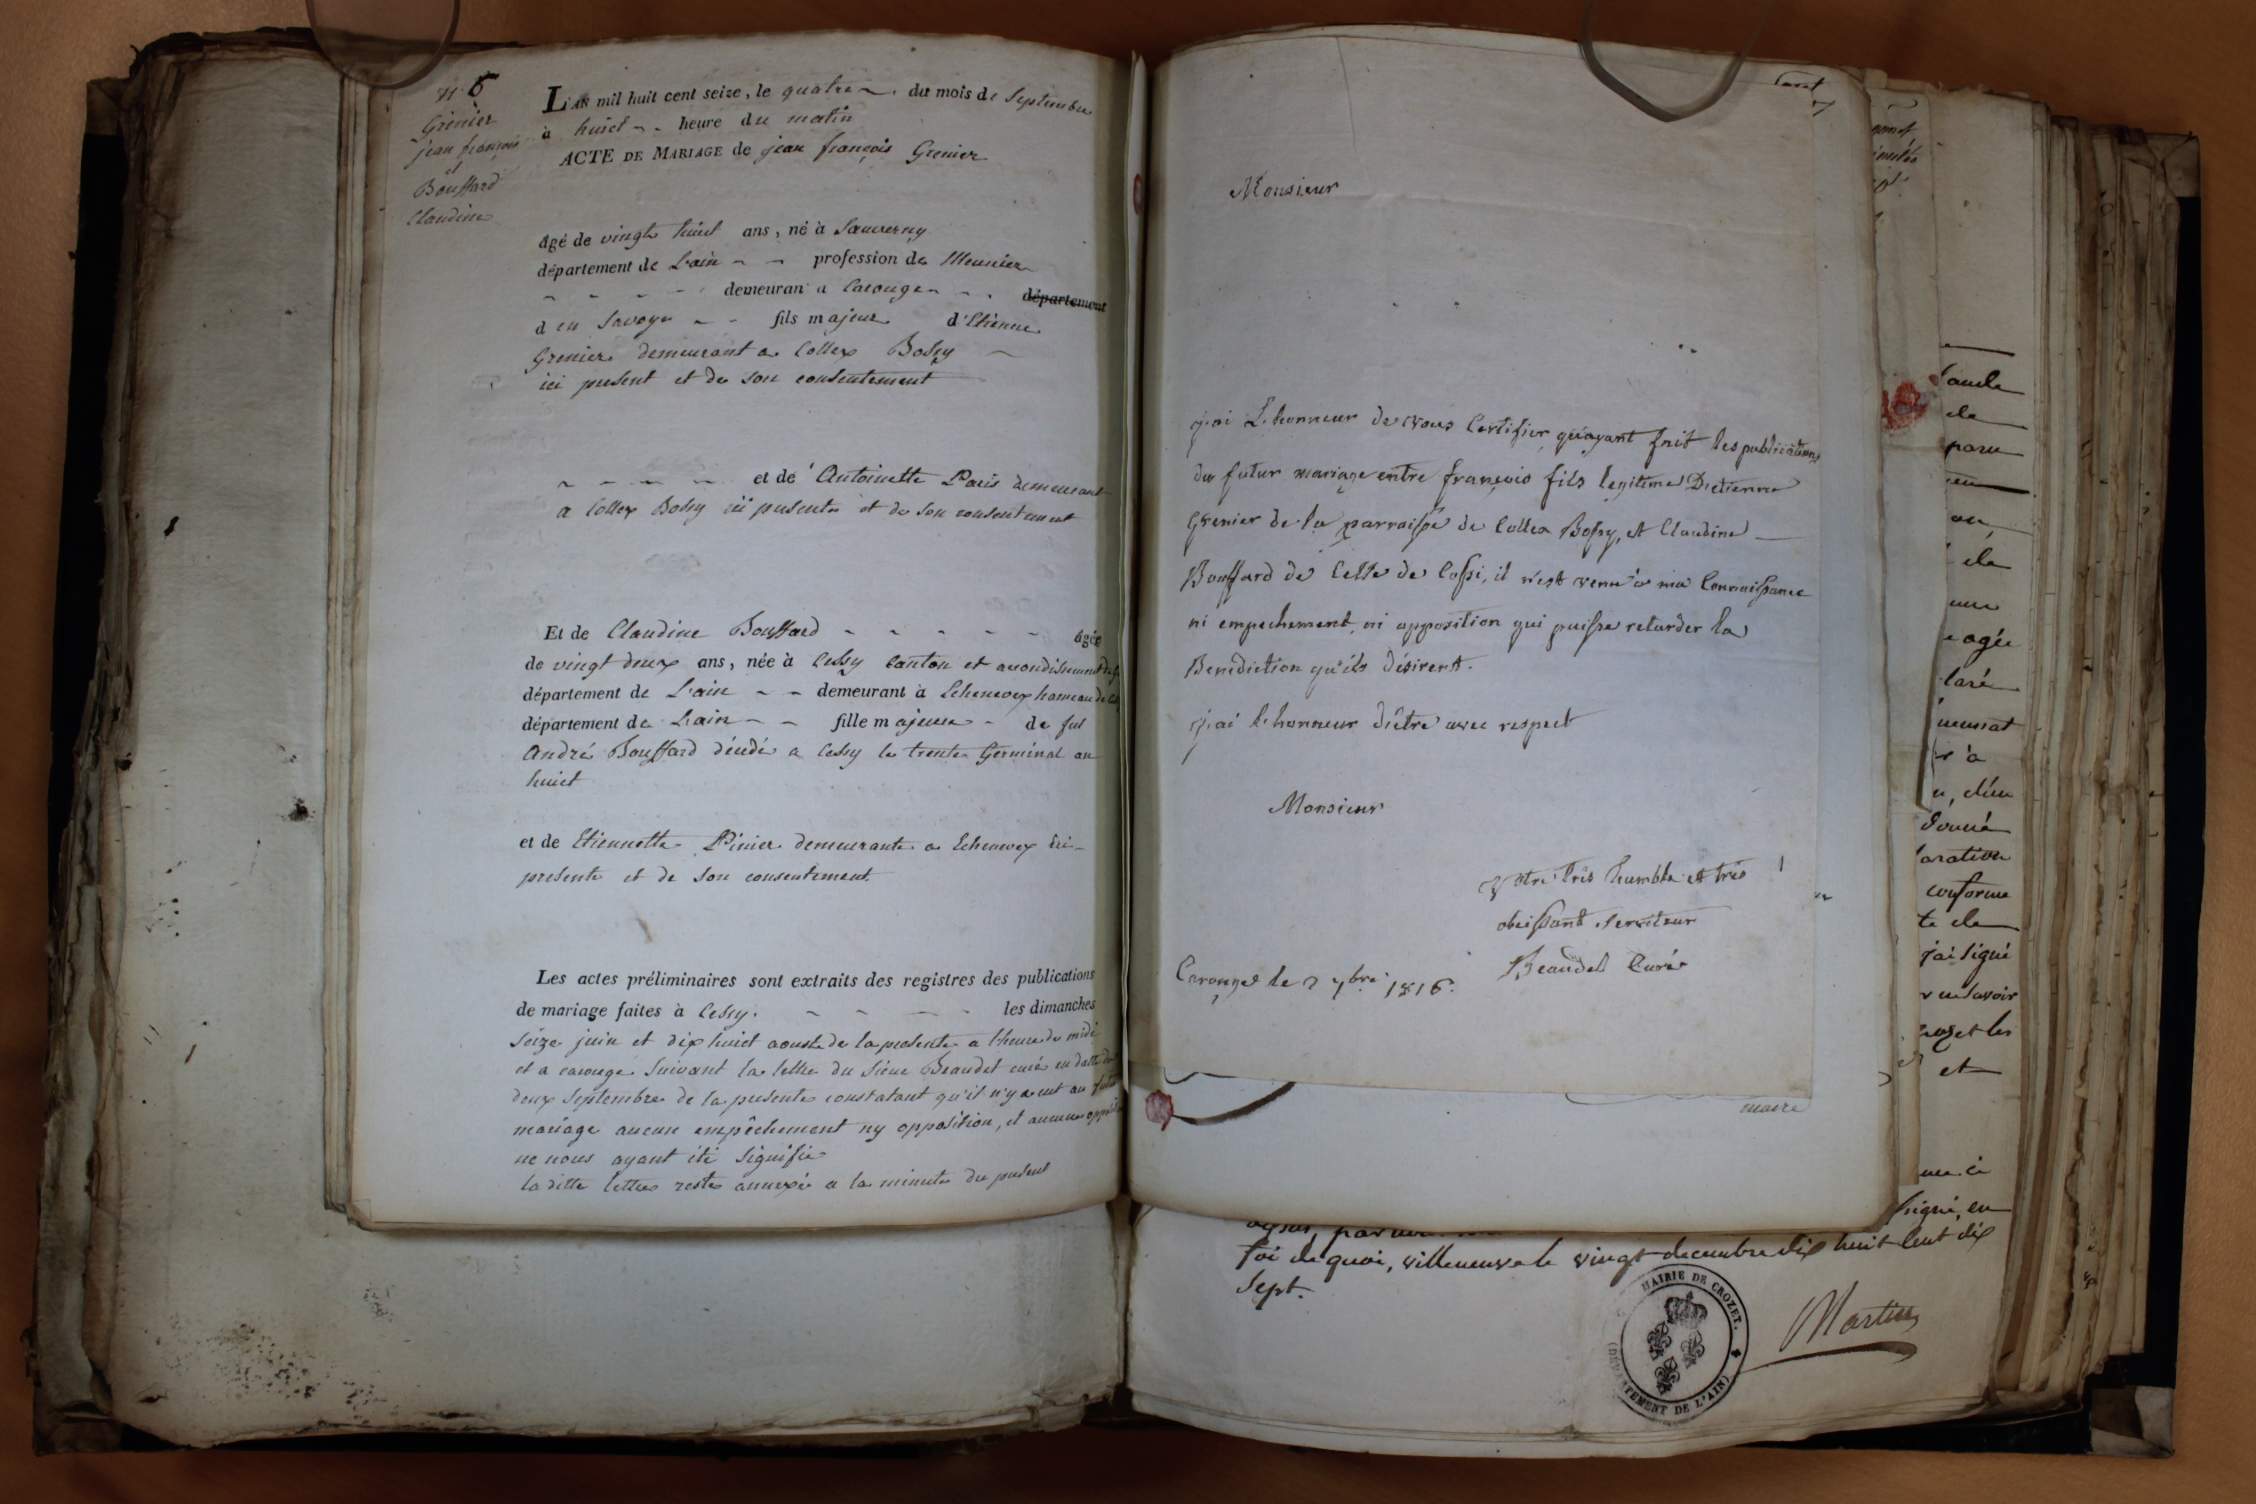 n° 6
Grenier
jean françois
et
Bouffard
Claudine
L'AN mil huit cent seize, le quatre du mois de Septembre
à huict heure du matin
ACTE DE MARIAGE de jean françois Grenier
âgé de vingt huict ans, né à Sauverny
département de L'ain profession de Meunier
demeuran a Carouge département
d en Savoye fils majeur d'Etienne
Grenier demeurant a Collex Bossy
ici present et de son consentement
et de Antoinette Paris demeurant
a Collex Bossy ici presente et de son consentement
Et de Claudine Bouffard âgée
de vingt deux ans, née à Cessy canton et arrondissement de
département de L'ain demeurant à Echenevex hameau de
département de L'ain fille majeure de fut
André Bouffard décédé a Cessy le trente Germinal an
huict
et de Etiennette Pinier demeurante a Echenevex ici
presente et de son consentement
Les actes préliminaires sont extraits des registres des publications
de mariage faites à Cessy. les dimanches
Seize juin et dix huict aoust de la presente a l'heure de midi
et a carouge suivant la lettre du Sieur Beaudet curé en datte du
deux Septembre de la presente constatant qu'il n'y a eut au futur
mariage aucun empêchement ny opposition, et aucune
ne nous ayant été signifié
la ditte lettre reste annexée a la minute du present
Monsieur
j'ai L'honneur de vous Certifier qu'ayant fait les publications
du futur mariage entre françois fils legitime D'etienne
Grenier de la parroisse de Collex Bossy, et Claudine
Bouffard de Celle de Cessi, il n'est venu à ma Connaissance
ni empechement, ni opposition qui puisse retarder la
Benediction qu'ils désirent.
j'ai l'honneur d'être avec respect
Monsieur
Votre très humble et très
obeissant serviteur
Beaudet Curé
Carouge le 2 7bre 1816.
maire
foi de quoi, villeneuve le vingt decembre dix huit Cent dix
Sept.
Martin
MAIRIE DE CROZET.
(DÉPARTEMENT DE L'AIN)
agée
conforme
te de
j'ai signé
et
signé, en